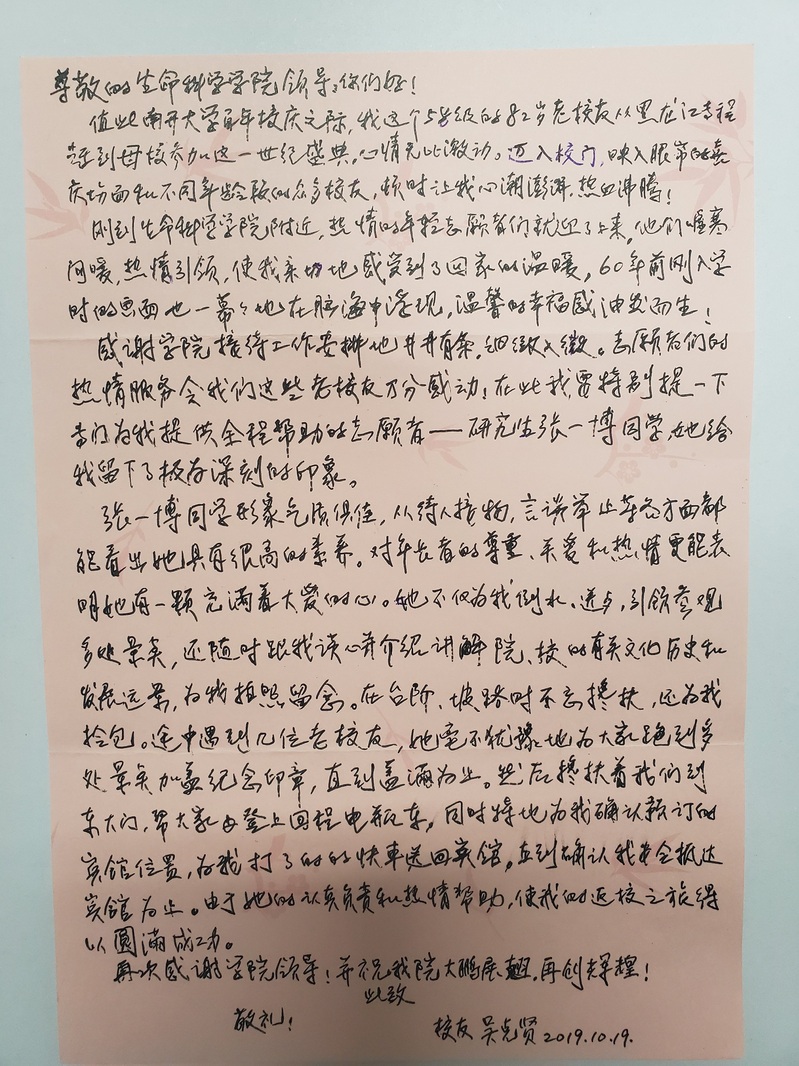 尊敬的生命科学学院领导：你们好！
值此南开大学百年校庆之际，我这个58级的82岁老校友从黑龙江专程
赶到母校参加这一世纪盛典，心情无比激动。迈入校门，映入眼帘的喜
庆场面和不同年龄段的众多校友，顿时让我心潮澎湃，热血沸腾！
刚到生命科学学院附近，热情的年轻志愿者们就迎了上来，他们嘘寒
问暖，热情引领，使我亲切地感受到了回家的温暖，60年前刚入学
时的画面也一幕々地在脑海中浮现，温馨的幸福感油然而生！
感谢学院接待工作安排地井井有条，细緻入微。志愿者们的
热情服务令我们这些老校友万分感动！在此我要特别提一下
专门为我提供全程帮助的志愿者——研究生张一博同学，她给
我留下了极为深刻的印象。
张一博同学形象气质俱佳，从待人接物，言谈举止等各方面都
能看出她具有很高的素养。对年长者的尊重、关爱和热情更能表
明她有一颗充满着大爱的心。她不仅为我倒水、送点，引领参观
多处景点，还随时跟我谈心并介绍讲解院、校的有关文化历史和
发展远景，为我拍照留念。在台阶、坡路时不忘搀扶，还为我
拎包。途中遇到几位老校友，她毫不犹豫地为大家跑到多
处景点加盖纪念印章，直到盖满为止。然后搀扶着我们到
东大门，帮大家登上回程电瓶车，同时特地为我确认预订的
宾馆位置，为我打了的的快车送回宾馆，直到确认我安全抵达
宾馆为止。由于她的认真负责和热情帮助，使我的返校之旅得
以圆满成功。
再次感谢学院领导！并祝我院大鹏展翅，再创辉煌！
此致
敬礼！
校友 吴克贤 2019.10.19.